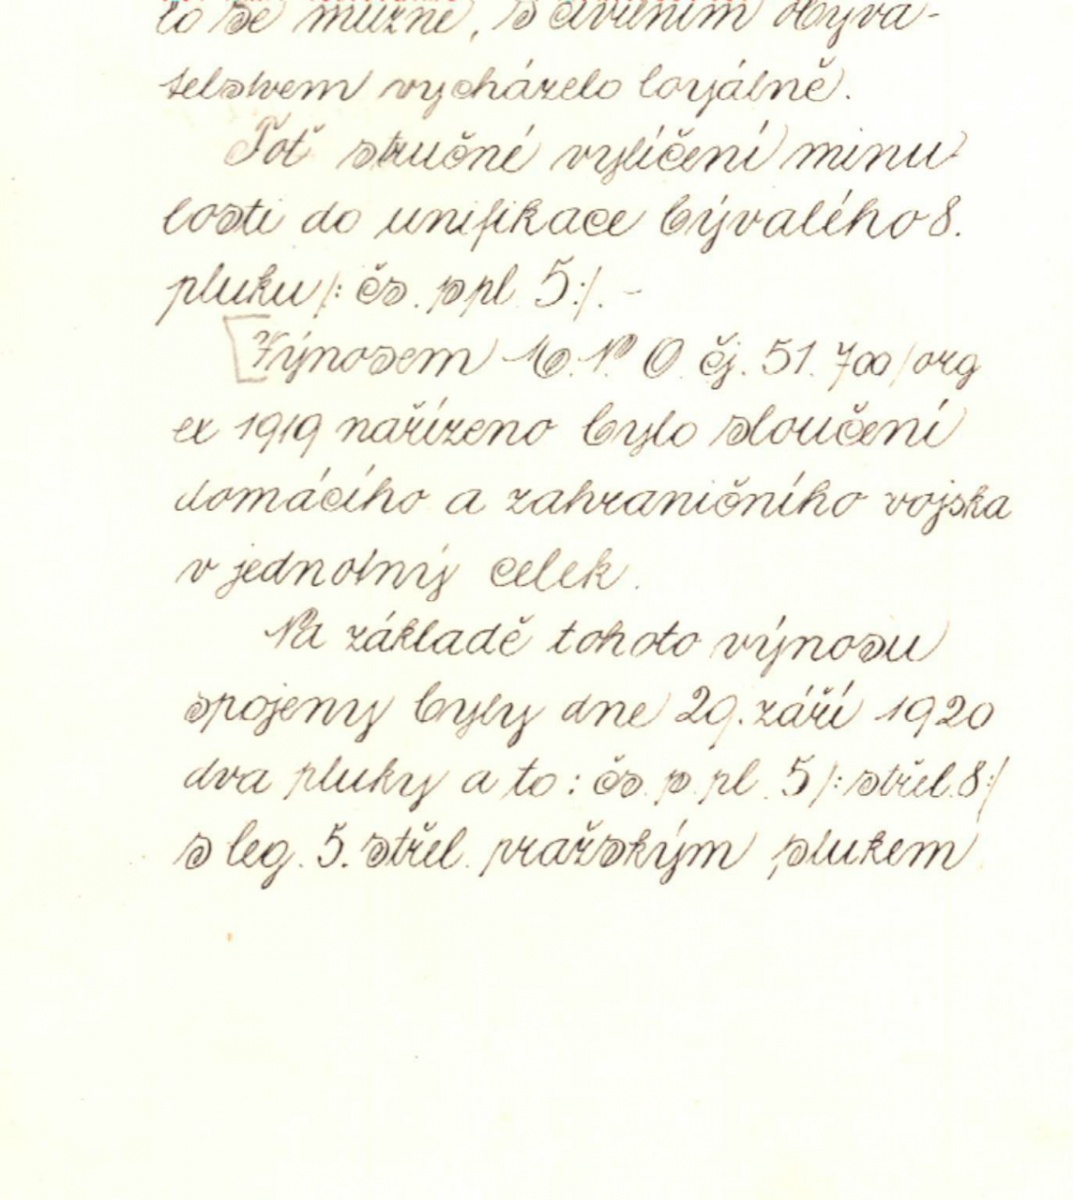 lo se mužně, s civilním obyva-
telstvem vycházelo loyálně.
Toť stručné vylíčení minu
losti do unifikace bývalého 8.
pluku /: čs. p pl. 5 :/. -
Výnosem M. N. O. čj. 51.700/org
ex 1919 nařízeno bylo sloučení
domácího a zahraničního vojska
v jednotný celek.
Na základě tohoto výnosu
spojeny byly dne 29. září 1920
dva pluky a to: čs. p. pl. 5 /: střel. 8 :/
s leg. 5. střel. pražským plukem